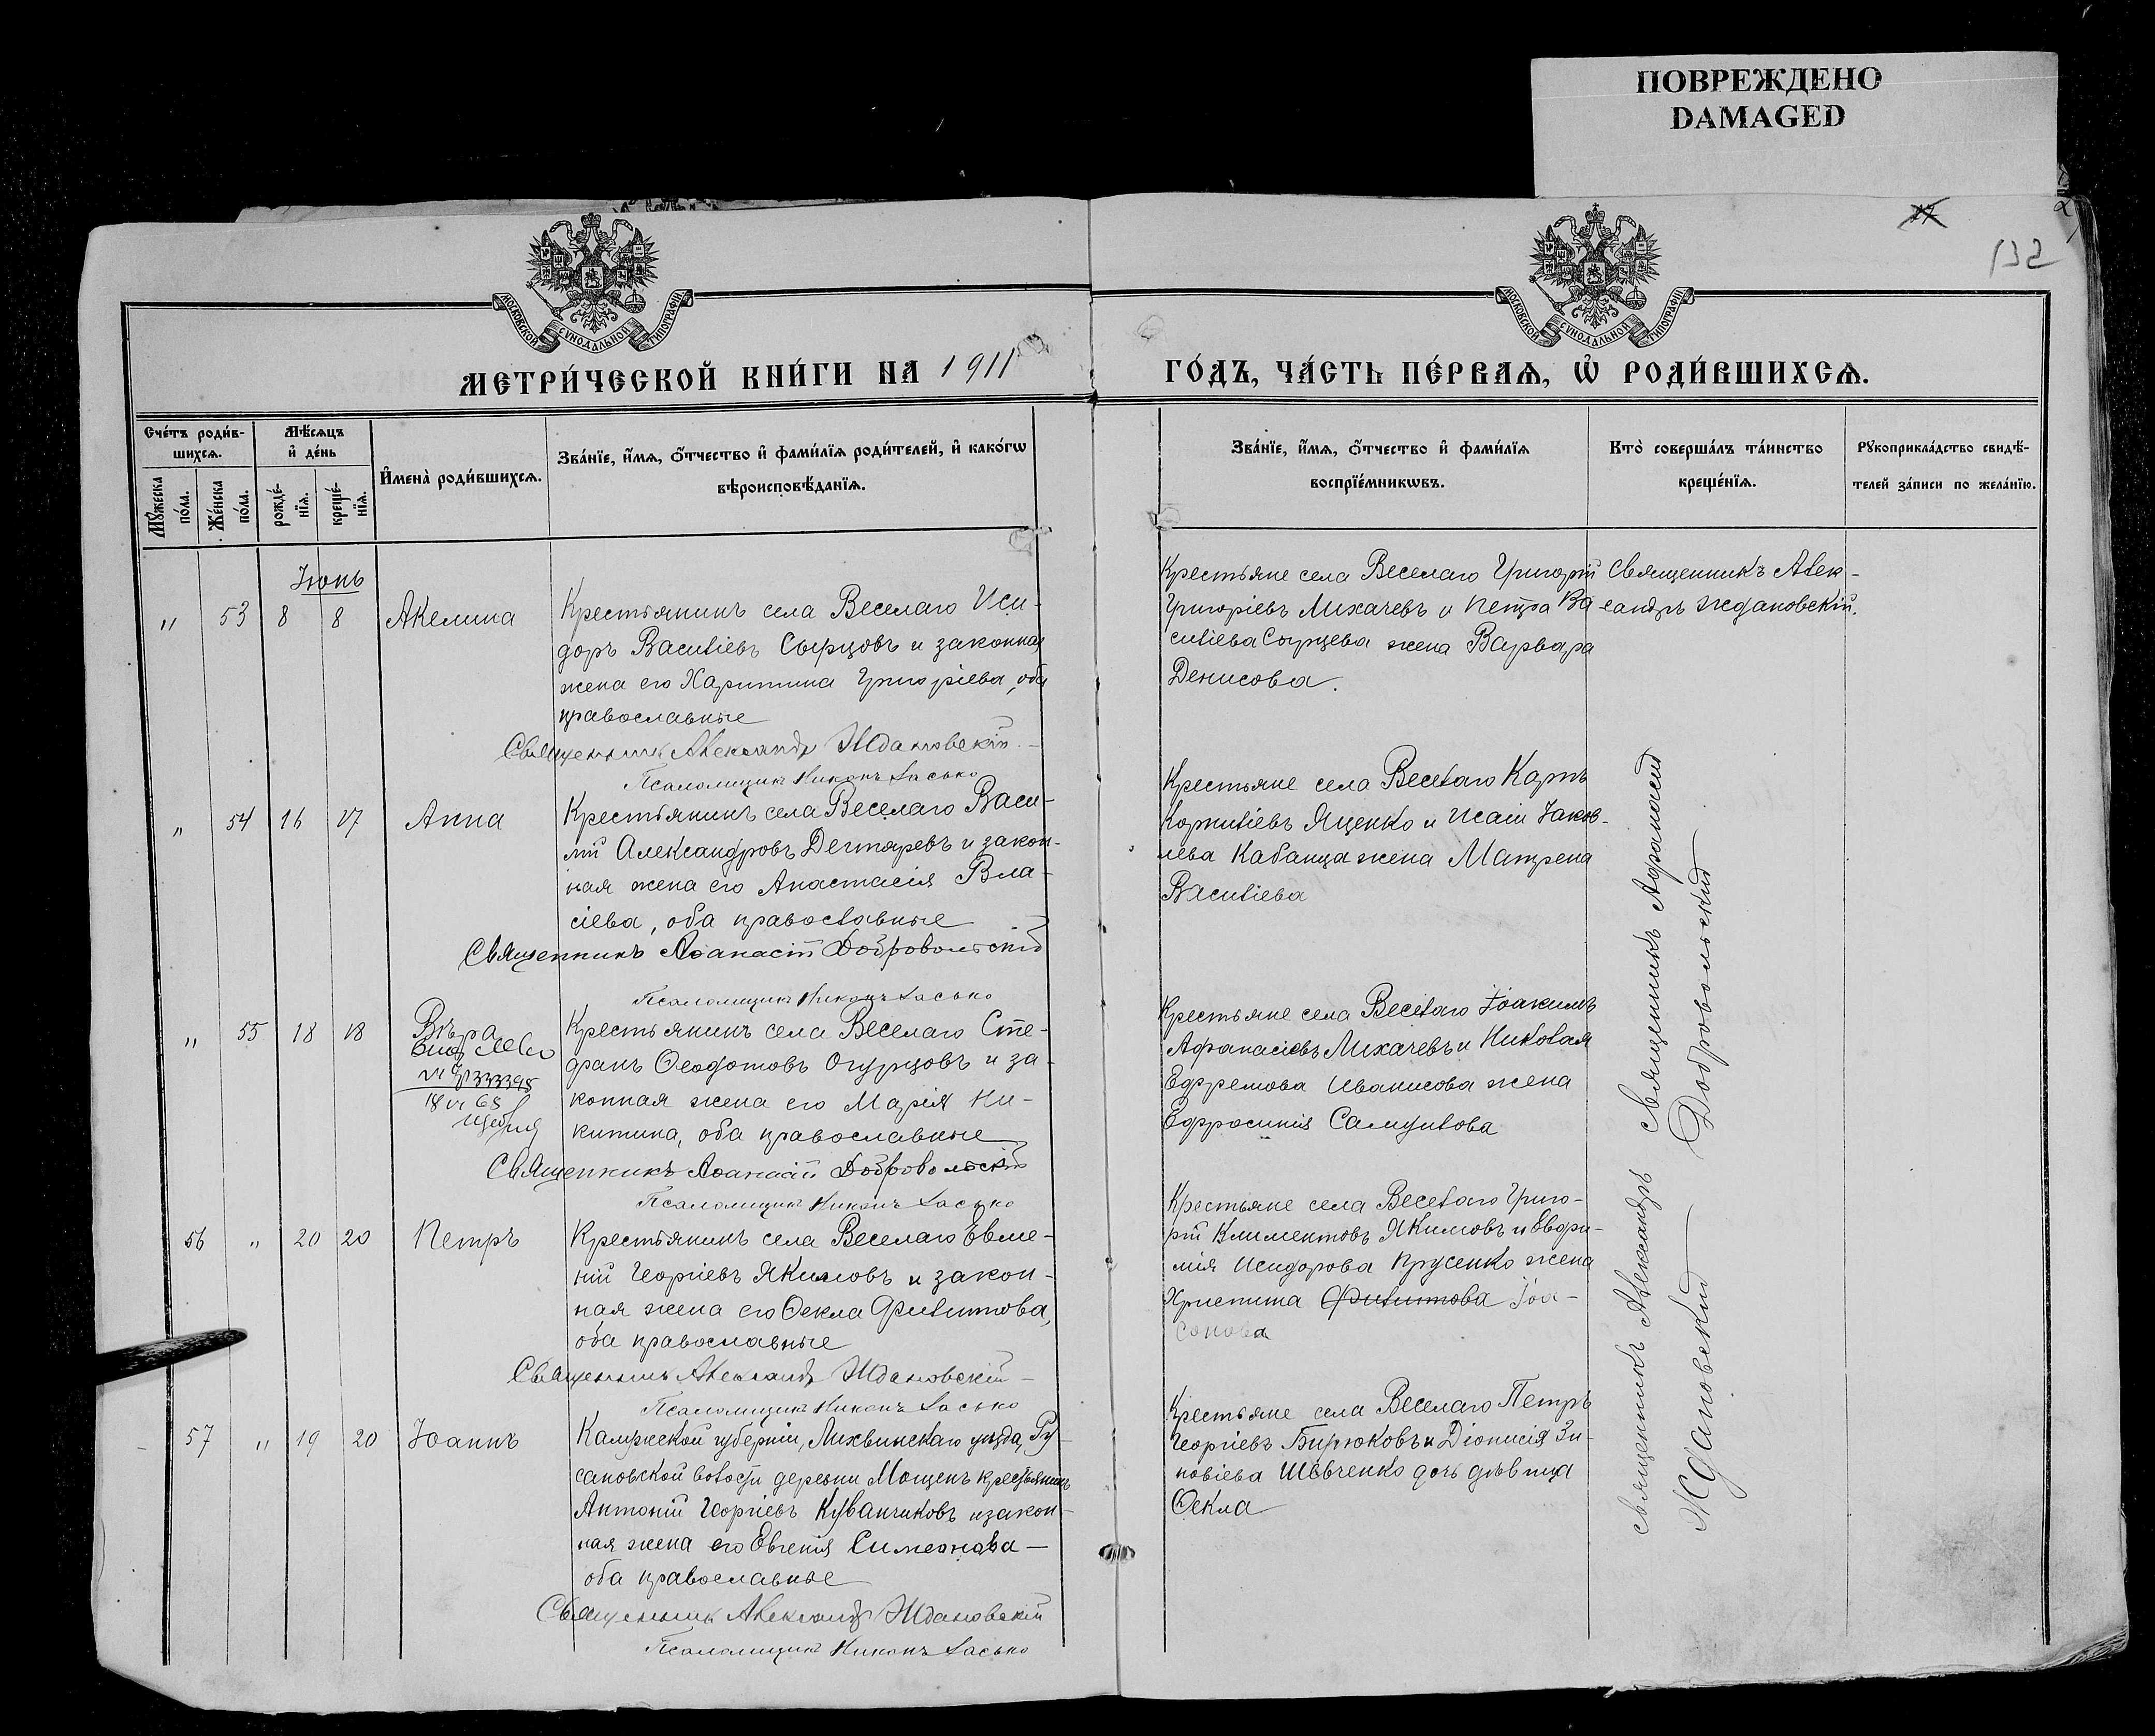 ПОВРЕЖДЕНО
DAMAGED
132
МОСКОВСКОЙ СѴНОДАЛЬНОЙ ТИПОГРАФІИ
МОСКОВСКОЙ СѴНОДАЛЬНОЙ ТИПОГРАФІИ
МЕТРИ́ЧЕСКОЙ КНИ́ГИ НА 1911
ГО́ДЪ, ЧА́СТЬ ПЕ́РВАѦ, Ѡ҆ РОДИ́ВШИХСѦ.
Сче́тъ роди́в-
шихсѧ.
Мѣ́сѧцъ
и҆ де́нь
И҆мена̀ роди́вшихсѧ.
Зва́нїе, и҆́мѧ, ѻ҆́тчество и҆ фами́лїѧ роди́телей, и҆ како́гѡ
вѣроисповѣ́данїѧ.
Мꙋ́жеска
по́ла.
Же́нска
по́ла.
рожде́-
нїѧ.
креще́-
нїѧ.
Зва́нїе, и҆́мѧ, ѻ҆́тчество и҆ фами́лїѧ
воспрїе́мникѡвъ.
Кто̀ соверша́лъ та́инство
креще́нїѧ.
Рꙋкоприкла́дство свидѣ́-
телей за́писи по жела́нїю.
Іюнь
" 53 8 8 Акелина
Крестьянинъ села Веселаго Иси-
доръ Василіевъ Сырцовъ и законная
жена его Харитина Григоріева, оба
православные
Священникъ Александръ Ждановскій
Псаломщикъ Никонъ Ласько
Крестьяне села Веселаго Григорій
Григоріевъ Михачевъ и Петра Ва-
силіева Сырцева жена Варвара
Денисова.
Священникъ Алек-
сандръ Ждановскій.
" 54 16 17 Анна
Крестьянинъ села Веселаго Васи-
лій Александровъ Дегтяревъ и закон-
ная жена его Анастасія Вла-
сіева, оба православные
Священникъ Аѳанасій Добровольскій
Псаломщикъ Никонъ Ласько
Крестьяне села Веселаго Карпъ
Корниліевъ Яценко и Исаіи Іаков-
лева Кабанца жена Матрена
Василіева
" 55 18 18 Вѣра
Крестьянинъ села Веселаго Сте-
фанъ Ѳеодотовъ Огурцовъ и за-
конная жена его Марія Ни-
китина, оба православные
Священникъ Аѳанасій Добровольскій
Псаломщикъ Никонъ Ласько
Крестьяне села Веселаго Іоакимъ
Афанасіевъ Михачевъ и Николая
Ефремова Иванисова жена
Ефросинія Самуилова
Священникъ Афанасій
Добровольскій
56 " 20 20 Петръ
Крестьянинъ села Веселаго Евме-
ній Георгіевъ Якимовъ и закон-
ная жена его Ѳекла Филиппова,
оба православные
Священникъ Александръ Ждановскій
Псаломщикъ Никонъ Ласько
Крестьяне села Веселаго Григо-
рій Климентовъ Якимовъ и Евфи-
мія Исидорова Прусенко жена
Христина Филиппова Іоа-
сонова
57 " 19 20 Іоаннъ
Калужской губерніи, Лихвинскаго уѣзда, Ру-
сановской волости деревни Мощенъ крестьянинъ
Антоній Георгіевъ Куванчиковъ и закон-
ная жена его Евгенія Симеонова —
оба православные
Священникъ Александръ Ждановскій
Псаломщикъ Никонъ Ласько
Крестьяне села Веселаго Петръ
Георгіевъ Бирюковъ и Діонисія Зи-
новіева Шевченко дочь дѣвица
Ѳекла
Священникъ Александръ
Ждановскій